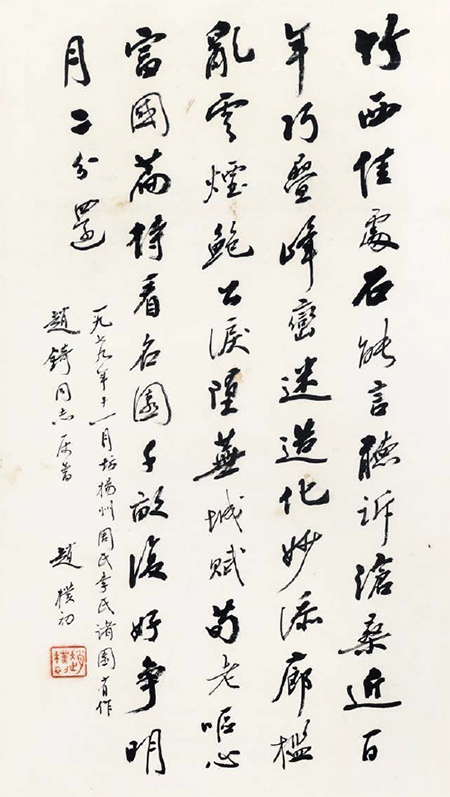 竹西佳處石能言聽訴滄桑近百
年巧疊峰巒迷造化妙添廊檻
亂雲煙鮑公淚墮蕪城賦荀老嘔心
富國篇待看名園千畝復好爭明
月二分還
一九七九年十一月訪揚州周氏李氏諸園有作
趙錡同志屬書 趙樸初